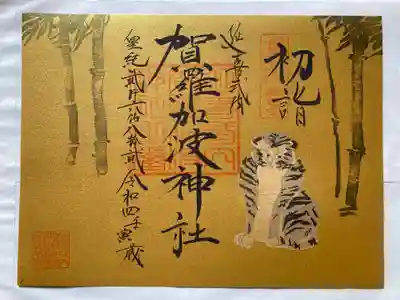 初詣
延喜式内
賀羅加波神社
皇紀貳阡六佰八拾貳 令和四年寅歳